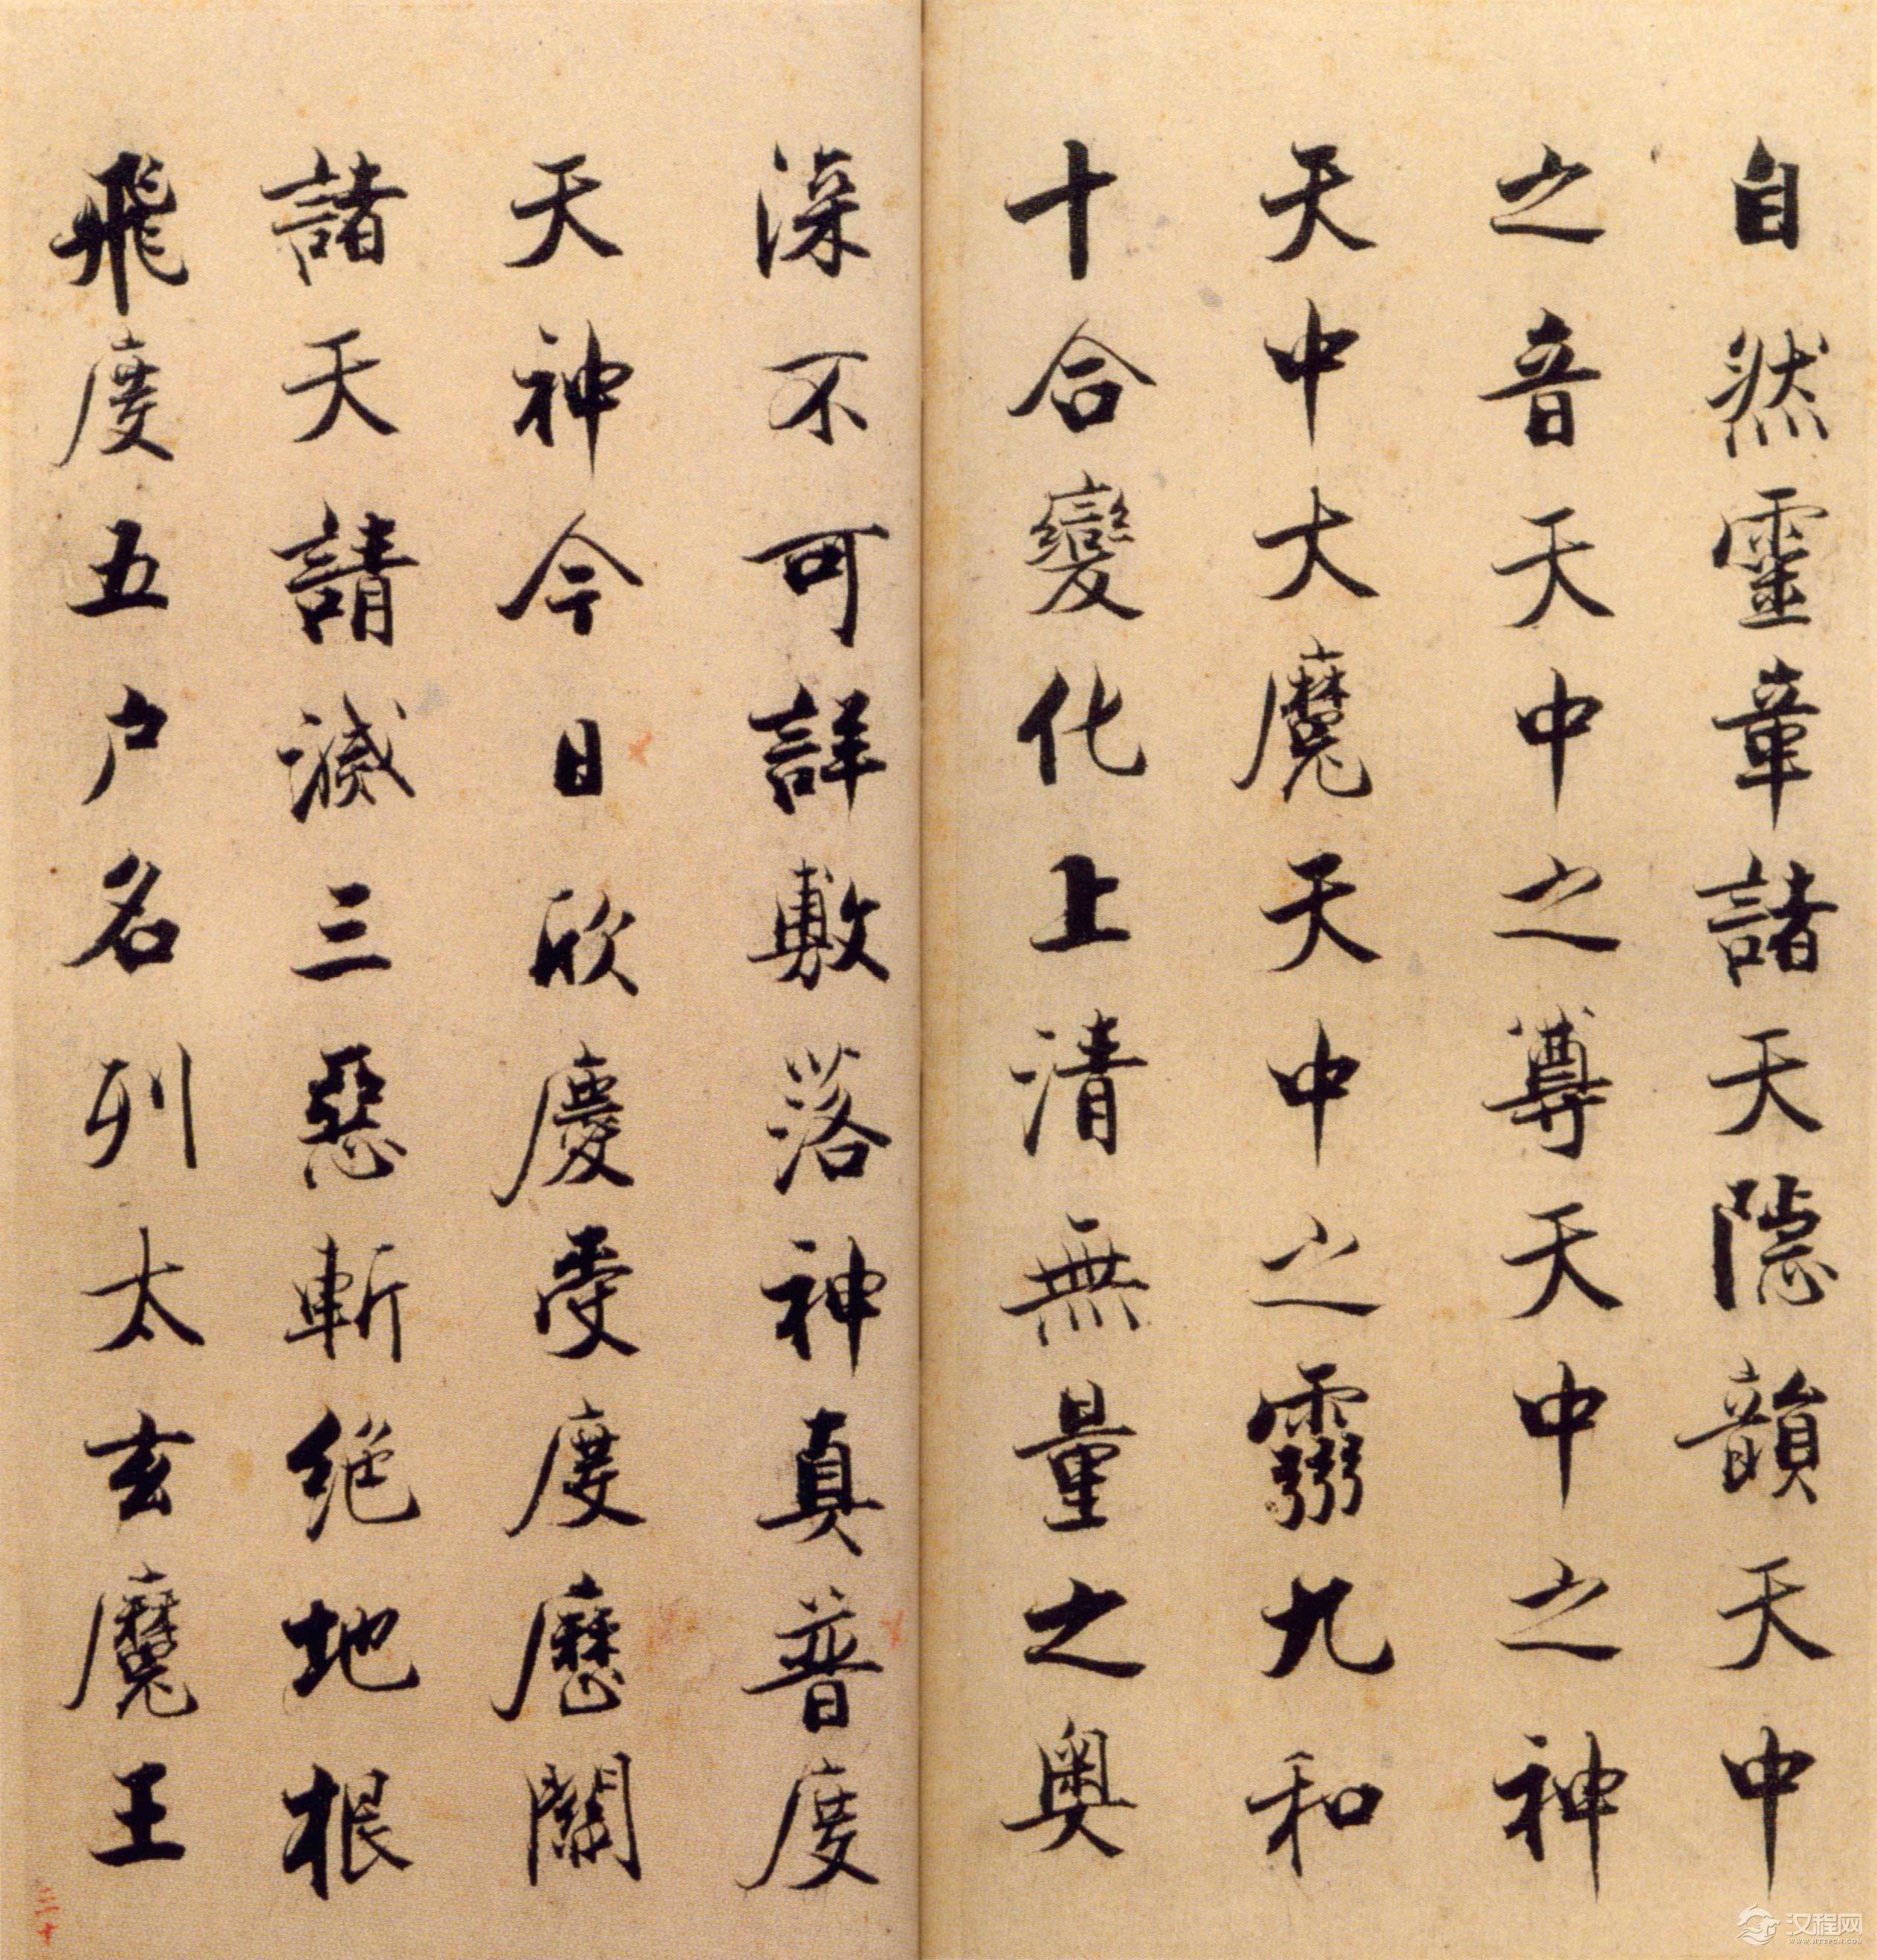 自然靈章諸天隱韻天中
之音天中之尊天中之神
天中大魔天中之靈九和
十合變化上清無量之奧
深不可詳敷落神真普度
天神今日欣慶受度歷關
諸天請滅三惡斬絕地根
飛度五户名列太玄魔王
汉程网
WWW.HTTPCN.COM